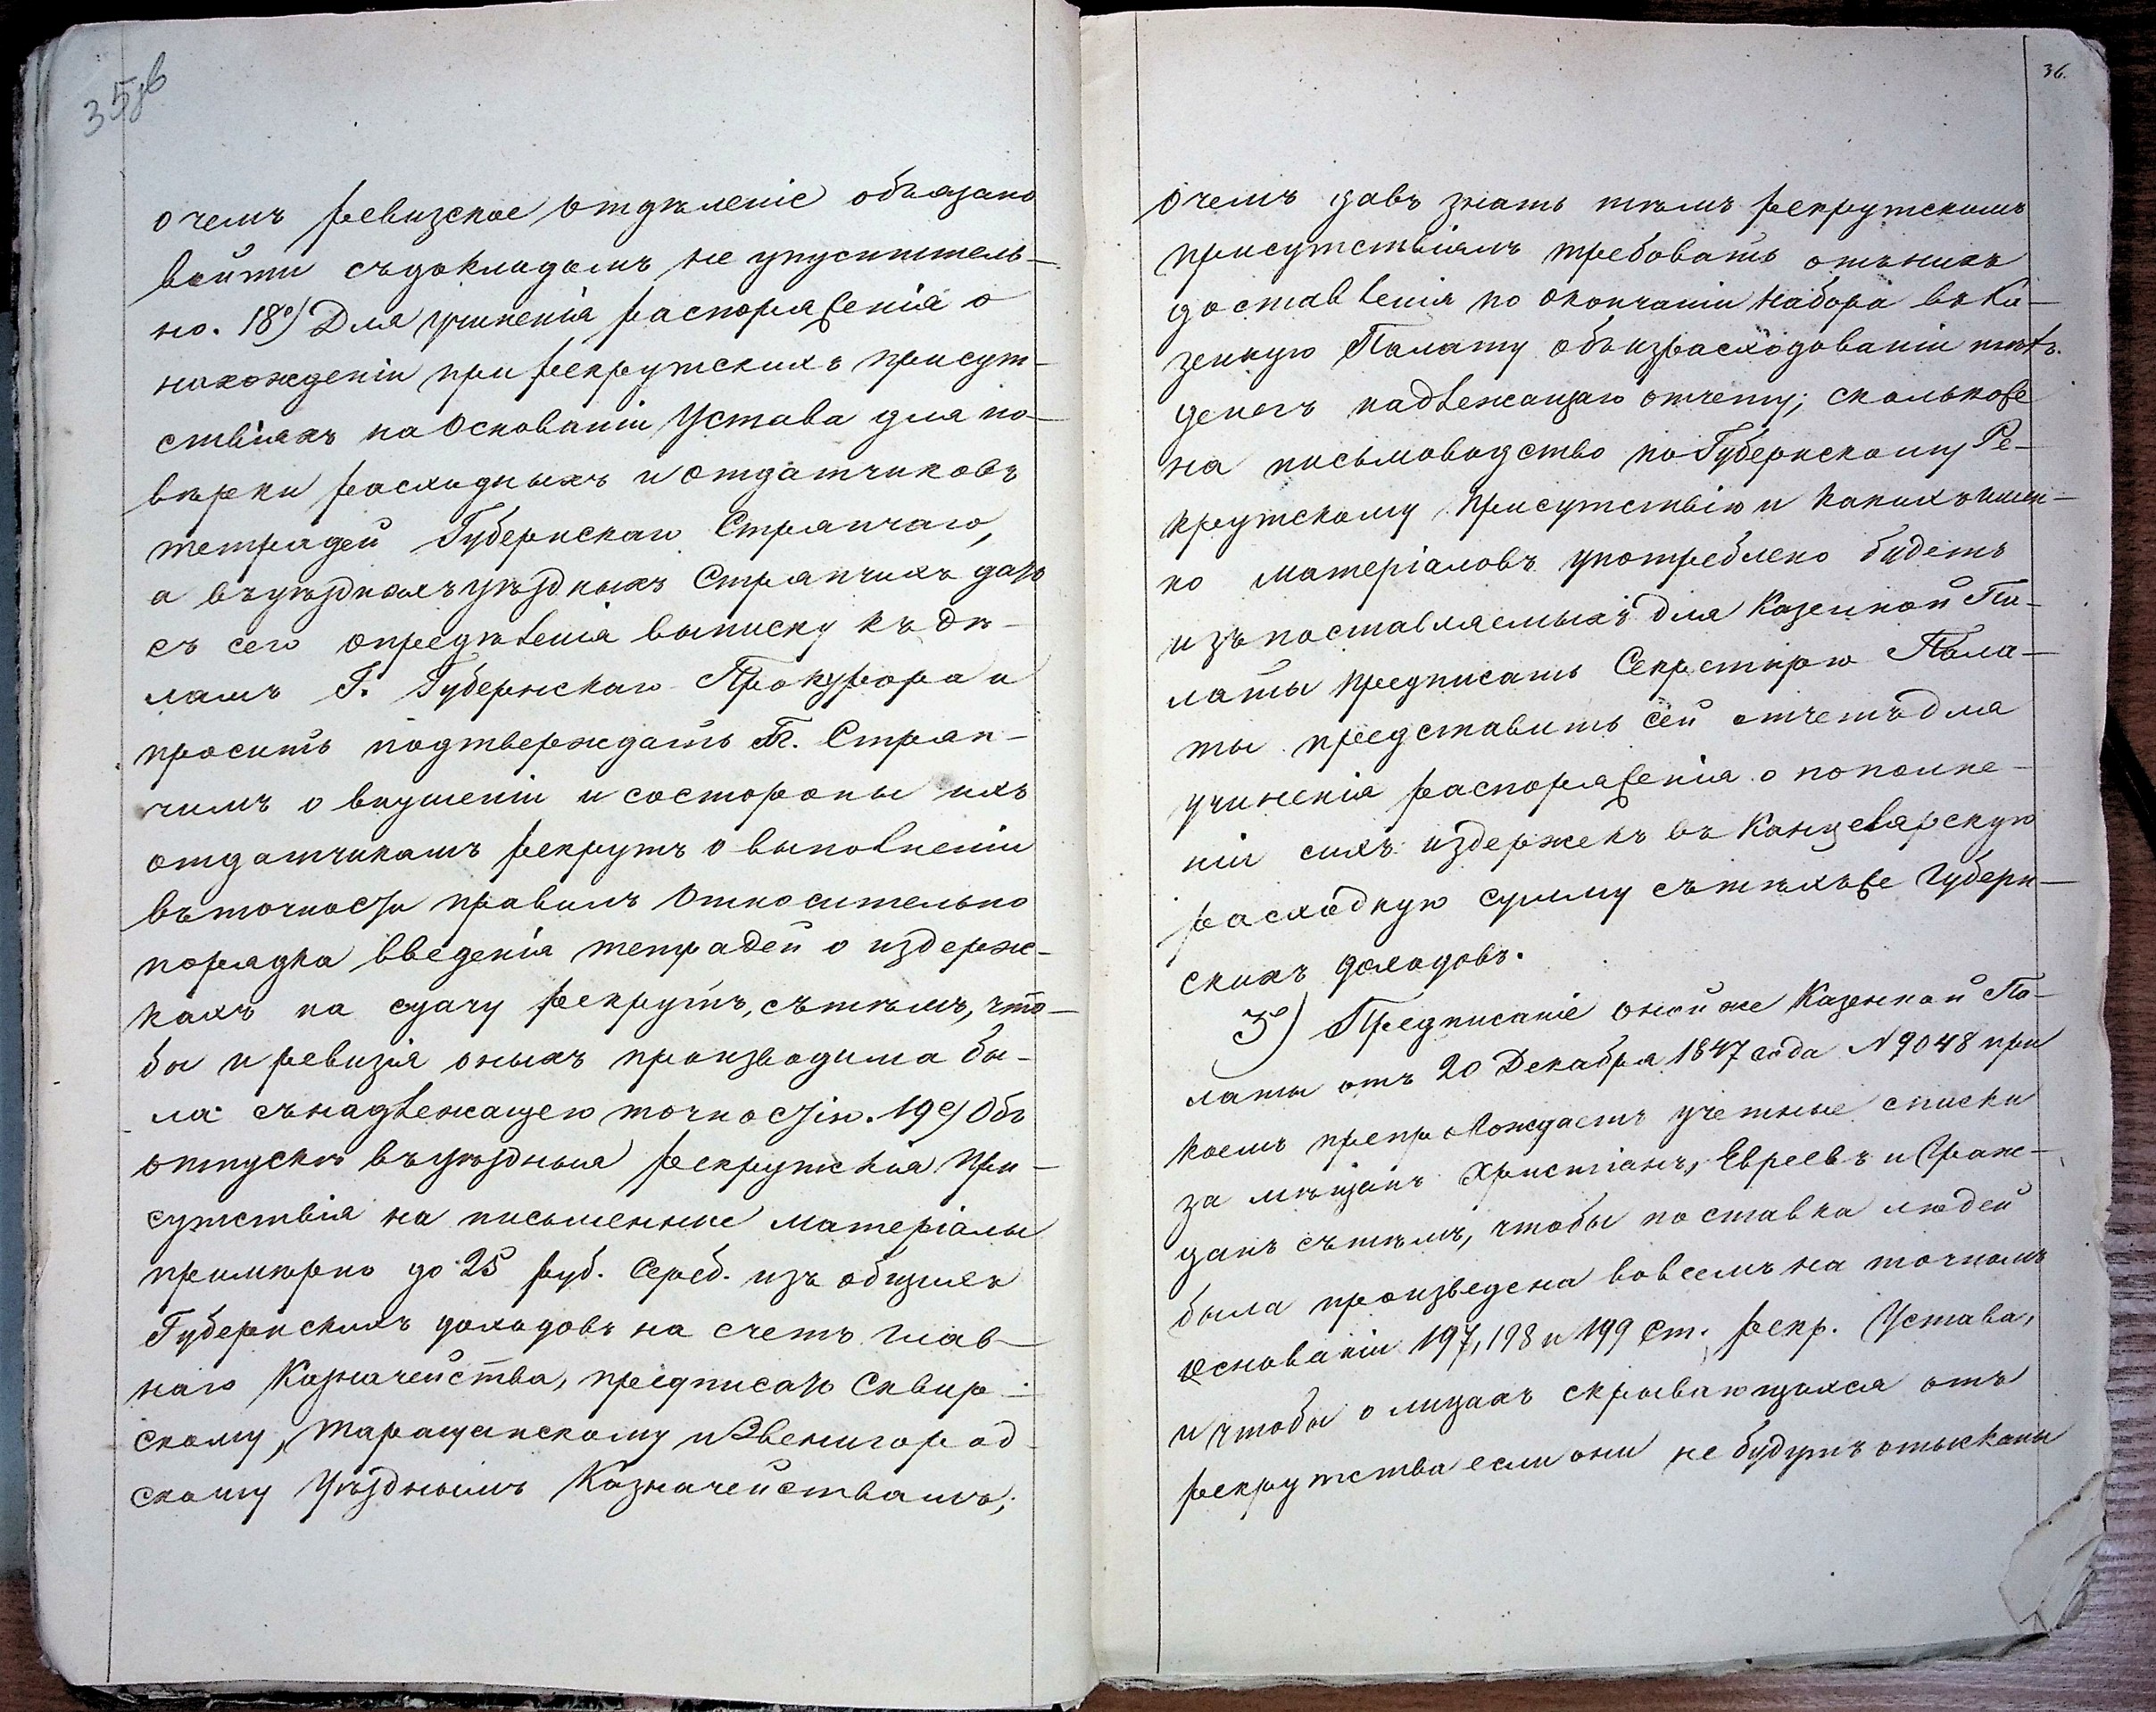 35об
о чемъ ревизское отдѣленіе обязано
войти съ докладомъ не упустительно
но. 18е) Для учиненія распоряженія о
нахожденіи при рекрутскихъ присут-
ствіяхъ на основаніи Устава для по-
вѣрки расходныхъ и отдатчиковъ
тетрадей Губернскаго Стряпчаго,
а въ уѣздныхъ уѣздныхъ Стряпчихъ дать
съ сего опредѣленія выписку къ дѣ-
ламъ Г. Губернскаго Прокурора и
просить подтверждать Гг. Стряп-
чимъ о внушеніи и состороны ихъ
отдатчикамъ рекрутъ о выполненіи
въ точности правилъ относительно
порядка введенія тетрадей о издерж-
кахъ на сдачу рекрутъ, съ тѣмъ, что-
бы и ревизія оныхъ производима бы-
ла съ надлежащею точностію. 19е) Объ
отпускѣ въ уѣздныя рекрутскія при-
сутствія на письменные матеріалы
примѣрно до 25 руб. Сереб. изъ общихъ
Губернскихъ доходовъ на счетъ глав-
наго Казначейства, предписать Сквир-
скому, Таращанскому и Звенигород-
скому Уѣзднымъ Казначействамъ;
36.
о чемъ давъ знать тѣмъ рекрутскимъ
присутствіямъ требовать отъ нихъ
доставленія по окончаніи набора въ Ка-
зенную Палату объ израсходованіи тѣхъ
денегъ надлежащаго отчету; сколько же
на письмоводство по Губернскому Ре-
крутскому Присутствію и какихъ имен-
но матеріаловъ употреблено будетъ
изъ поставляемыхъ для Казенной Па-
латы предписать Секретарю Пала-
ты представить сей отчетъ для
учиненія распоряженія о пополне-
ніи сихъ издержекъ въ Канцелярскую
расходную сумму съ тѣхъ же Губерн-
скихъ доходовъ.
3е) Предписаніе оной же Казенной Па-
латы отъ 20 Декабря 1847 года N 9048 при
коемъ препровождаетъ учетные списки
за мѣщанъ Христіанъ, Евреевъ и Граж-
данъ съ тѣмъ, чтобы поставка людей
была произведена вовсемъ на точномъ
основаніи 197, 198 и 199 ст. рекр. Устава,
и чтобы о лицахъ скрывающихся отъ
рекрутства если они не будутъ отысканы